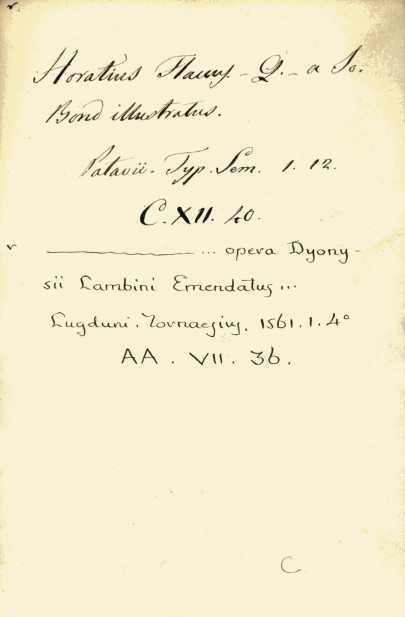 Horatius Flaccus - Q. - a Jo.
Bond illustratus.
Patavii. Typ. Sem. 1. 12.
C. XII. 40.
... opera Dyony-
sii Lambini Emendatus ...
Lugduni. Tornaesius. 1561. 1. 4°
AA. VII. 36.
C